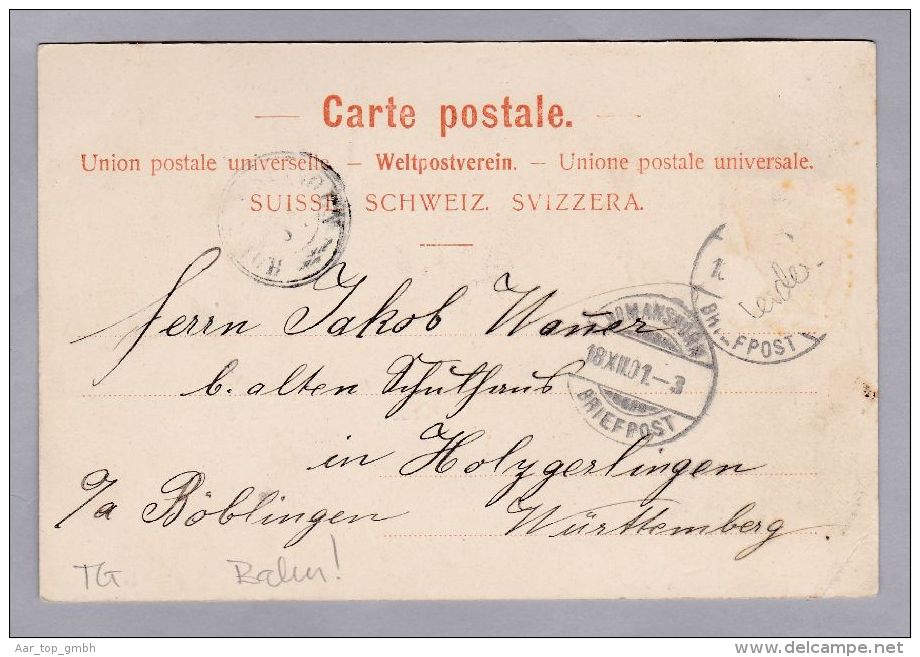 Carte postale.
Union postale universelle. — Weltpostverein. — Unione postale universale.
SUISSE. SCHWEIZ. SVIZZERA.
Herrn Jakob Wauer
b. alten Schulhaus
in Holzgerlingen
p/a Böblingen Württemberg
ROMANSHORN
18 XII.01.-3
BRIEFPOST
BRIEFPOST
TG Bahn!
Aar_top_gmbh
www.delcampe.net